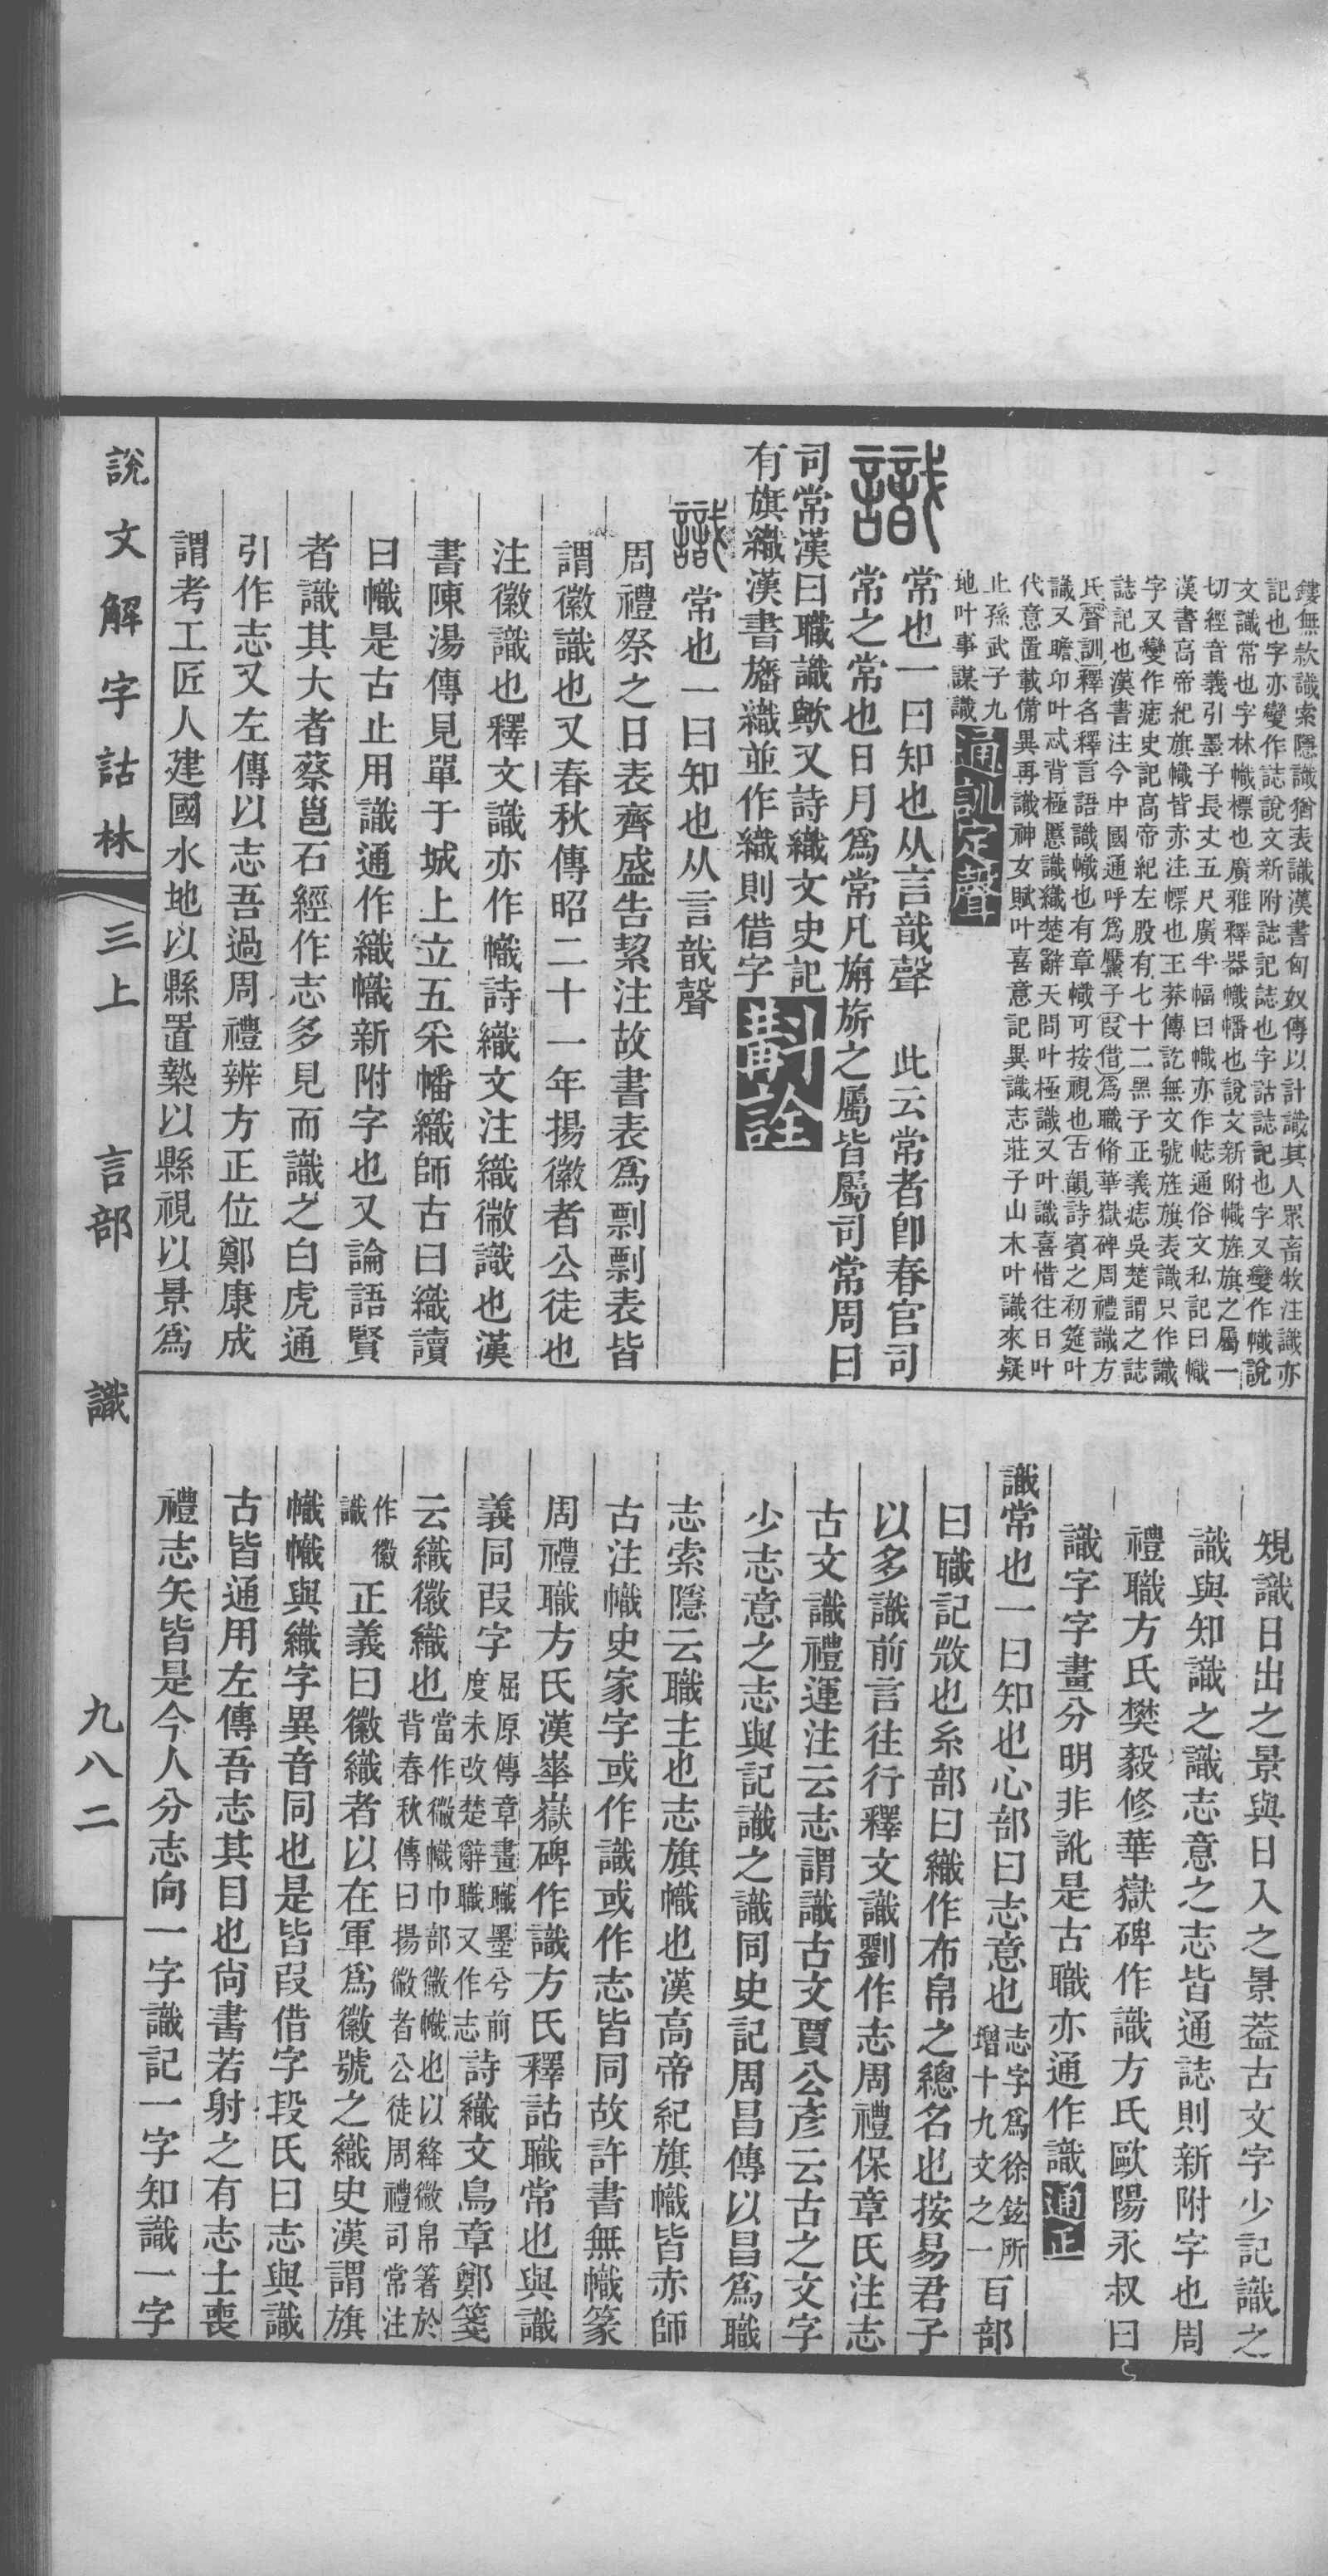 鏤無款識索隱識猶表識漢書匈奴傳以計識其人眾畜牧注識亦
記也字亦變作誌說文新附誌記誌也字詁誌記也字又變作幟說
文識常也字林幟標也廣雅釋器幟幡也說文新附幟旌旗之屬一
切經音義引墨子長丈五尺廣半幅曰幟亦作㡶通俗文私記曰幟
漢書高帝紀旗幟皆亦注幖也王莽傳訖無文號旌旗表識只作識
字又變作痣史記高帝紀左股有七十二黑子正義痣吳楚謂之誌
誌記也漢書注今中國通呼爲黶子叚借爲職脩華嶽碑周禮識方
氏聲訓釋名釋言語識幟也有章幟可按視也古韻詩賓之初筵叶
識又瞻卬叶忒背極慝識織楚辭天問叶極識又叶識喜惜往日叶
代意置載備異再識神女賦叶喜意記異識志莊子山木叶識來疑
止孫武子九
地叶事謀識
通訓定聲
識 常也一曰知也从言戠聲 此云常者卽春官司
常之常也日月爲常凡旃旂之屬皆屬司常周曰
司常漢曰職識歟又詩織文史記
有旗織漢書旛織並作織則借字
斠詮
識 常也一曰知也从言戠聲
周禮祭之日表齍盛告絜注故書表爲剽剽表皆
謂徽識也又春秋傳昭二十一年揚徽者公徒也
注徽識也釋文識亦作幟詩織文注織徽識也漢
書陳湯傳見單于城上立五采幡織師古曰織讀
曰幟是古止用識通作織幟新附字也又論語賢
者識其大者蔡邕石經作志多見而識之白虎通
引作志又左傳以志吾過周禮辨方正位鄭康成
謂考工匠人建國水地以縣置槷以縣視以景爲
規識日出之景與日入之景葢古文字少記識之
識與知識之識志意之志皆通誌則新附字也周
禮職方氏樊毅修華嶽碑作識方氏歐陽永叔曰
識字字畫分明非訛是古職亦通作識
通正
識常也一曰知也心部曰志意也志字爲徐鉉所
增十九文之一百部
曰職記㣲也糸部曰織作布帛之總名也按易君子
以多識前言往行釋文識劉作志周禮保章氏注志
古文識禮運注云志謂識古文賈公彥云古之文字
少志意之志與記識之識同史記周昌傳以昌爲職
志索隱云職主也志旗幟也漢高帝紀旗幟皆赤師
古注幟史家字或作識或作志皆同故許書無幟篆
周禮職方氏漢華嶽碑作識方氏釋詁職常也與識
義同叚字屈原傳章畫職墨兮前
度未改楚辭職又作志詩織文鳥章鄭箋
云織徽織也當作徽幟巾部徽幟也以絳徽帛箸於
背春秋傳曰揚徽者公徒周禮司常注
作徽
識正義曰徽織者以在軍爲徽號之織史漢謂旗
幟幟與織字異音同也是皆叚借字段氏曰志與識
古皆通用左傳吾志其目也尙書若射之有志士喪
禮志矢皆是今人分志向一字識記一字知識一字
說文解字詁林 三上 言部 識 九八二